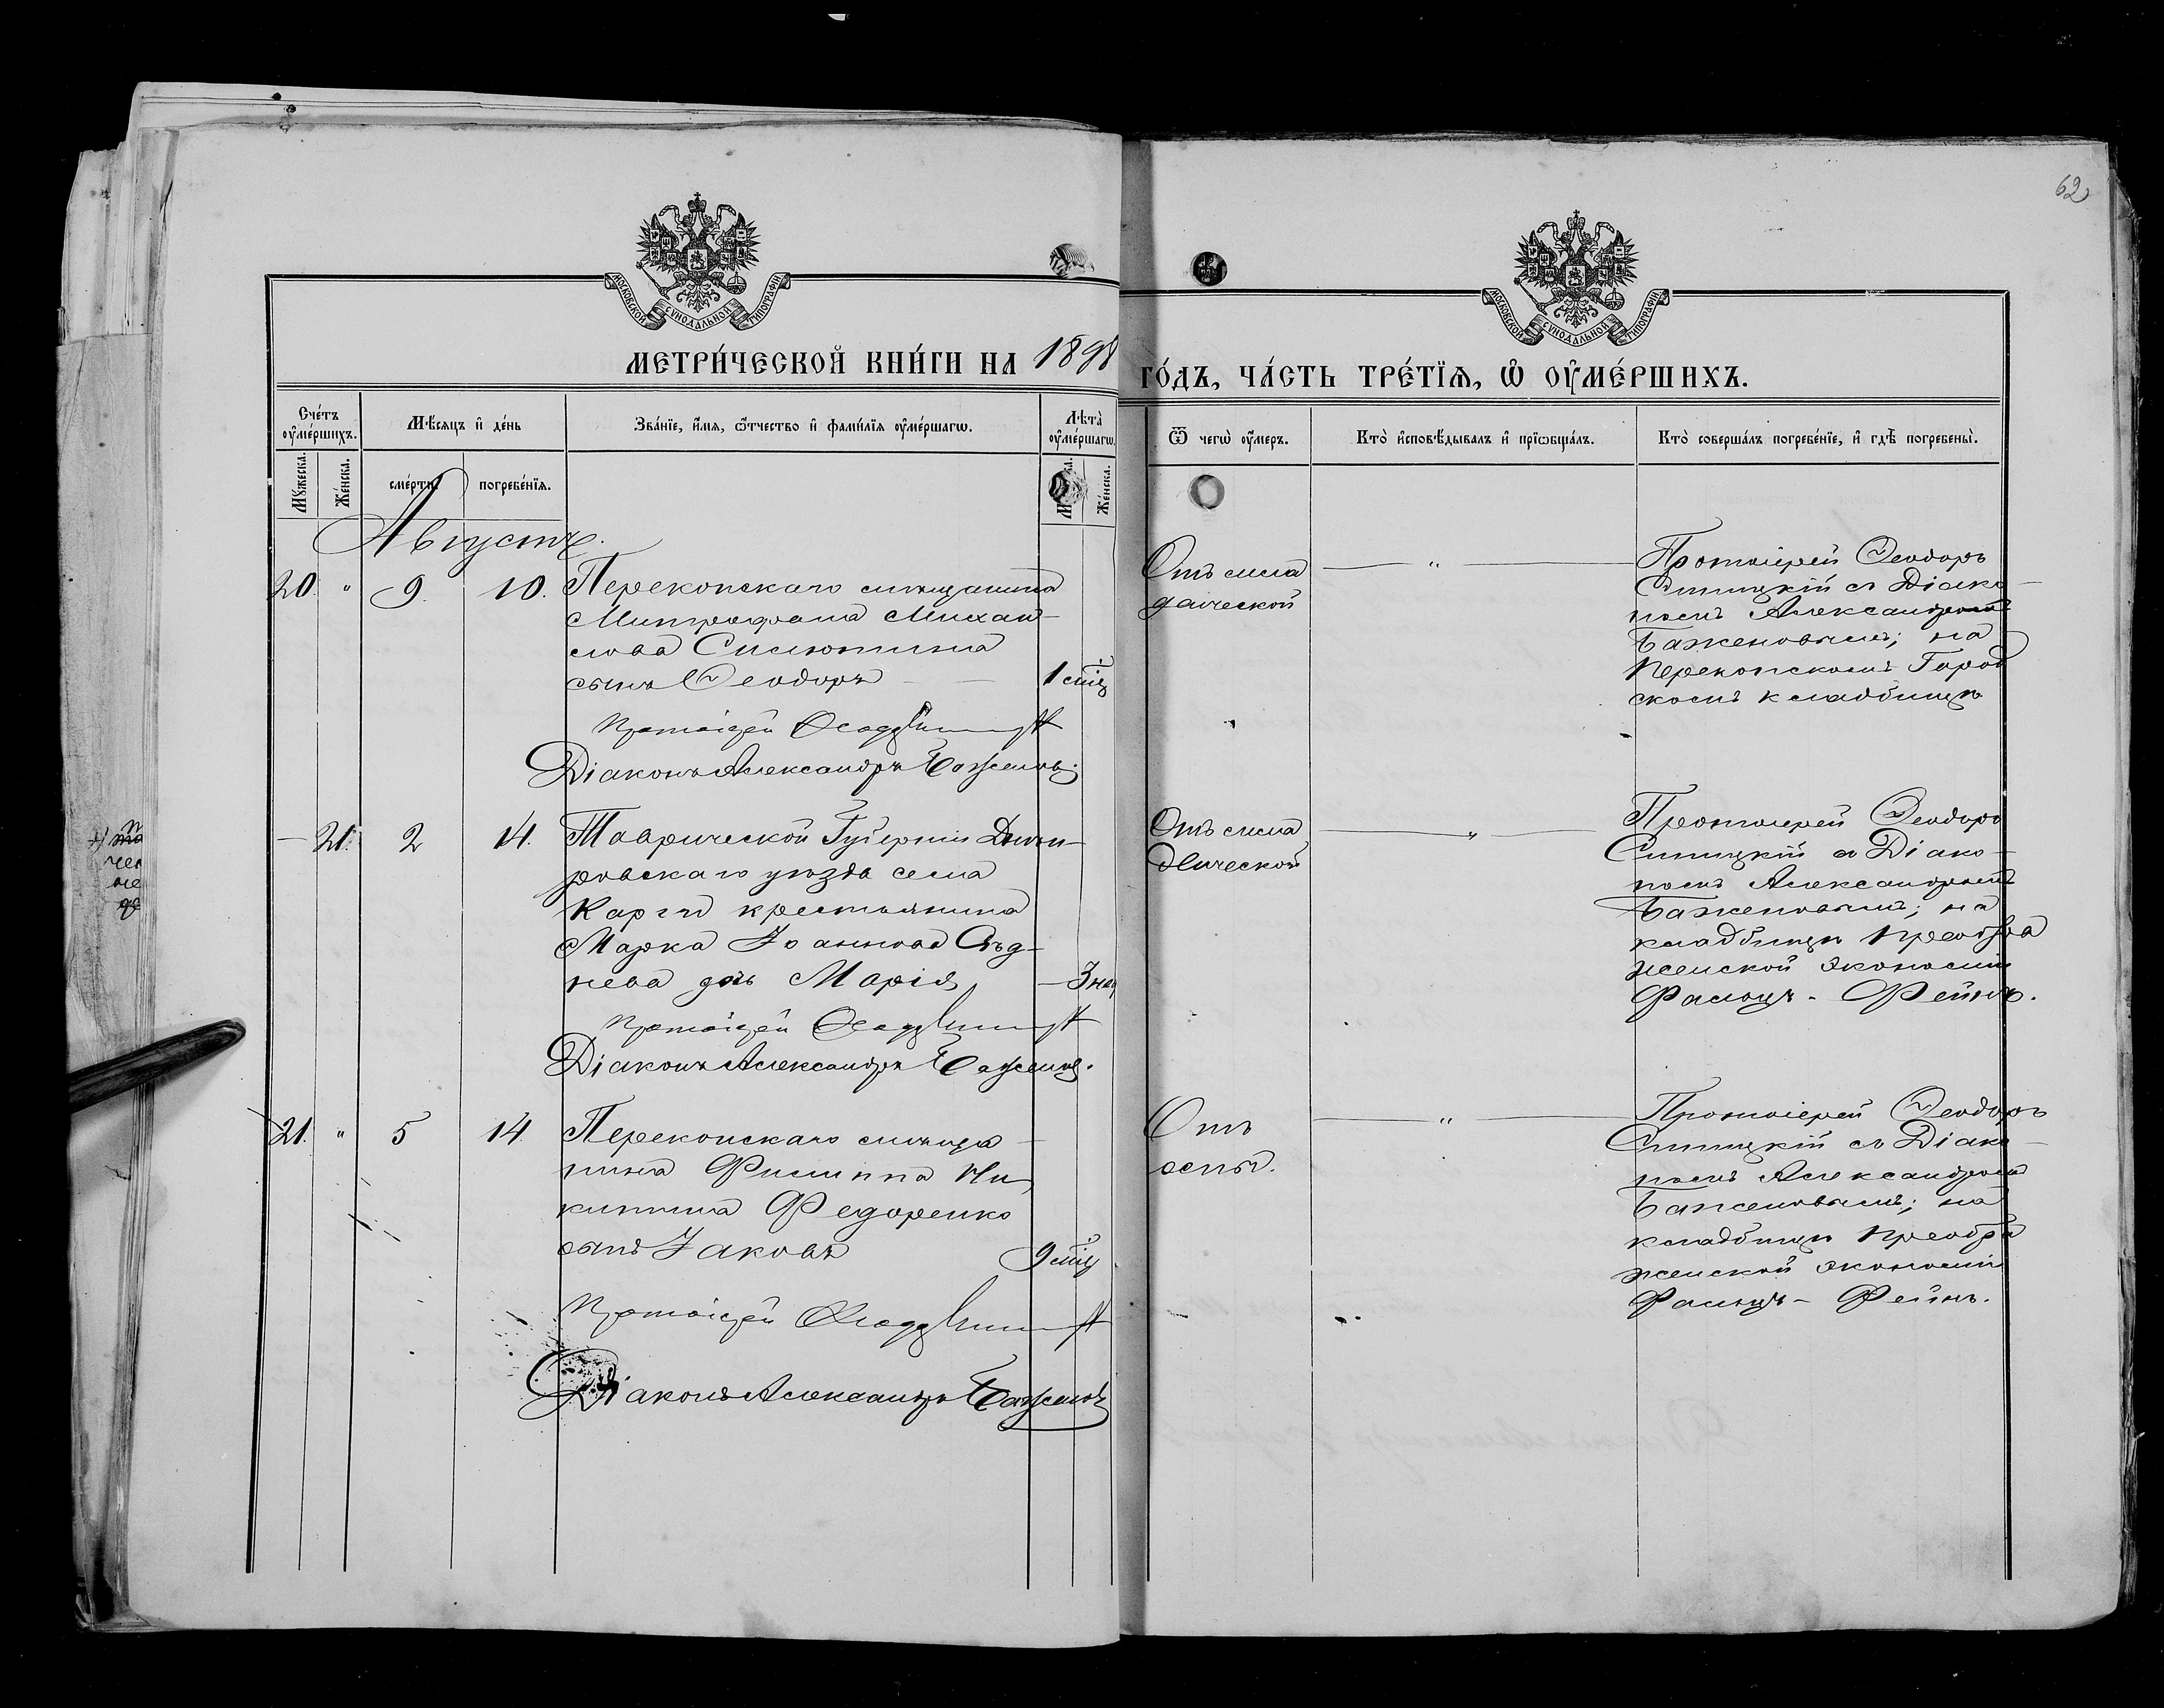 62
МОСКОВСКОЙ СѴНОДАЛЬНОЙ ТИПОГРАФІИ
МОСКОВСКОЙ СѴНОДАЛЬНОЙ ТИПОГРАФІИ
МЕТРИ́ЧЕСКОЙ КНИ́ГИ НА 1898
ГО́ДЪ, ЧА́СТЬ ТРЕ́ТЇѦ, Ѡ҆ ОУ҆МЕ́РШИХЪ.
Сче́тъ оу҆ме́ршихъ.
Мꙋ́жеска.
Же́нска.
Мѣ́сяцъ и҆ де́нь
сме́рти.
погребе́нїя.
Зва́нїе, и҆́мя, ѻ҆́тчество и҆ фами́лїя оу҆ме́ршагѡ.
Лѣ́та оу҆ме́ршагѡ.
Же́нска.
Ѿ чегѡ̀ оу҆́меръ.
Кто̀ и҆сповѣ́дывалъ и҆ прїѡбща́лъ.
Кто̀ соверша́лъ погребе́нїе, и҆ гдѣ̀ погребены̀.
Августъ.
20. " 9. 10. Перекопскаго мѣщанина
Митрофана Михаи-
лова Силютина
сынъ Ѳеодоръ — 1 мц
Протоіерей Ѳеодоръ
Діаконъ Александръ Баженовъ.
Отъ мла
денческой
"
Протоіерей Ѳеодоръ
Спицкій съ Діако-
номъ Александромъ
Баженовымъ; на
Перекопскомъ Город
скомъ кладбищѣ
— 21. 2 14. Таврической Губерніи Днѣп-
ровскаго уѣзда села
Карги крестьянина
Марка Іоаннова Сѣд-
нева дочь Марія — 3 нед
Протоіерей Ѳеодоръ
Діаконъ Александръ Баженовъ.
Отъ мла
денческой
"
Протоіерей Ѳеодоръ
Спицкій съ Діако-
номъ Александромъ
Баженовымъ; на
кладбищѣ Преобра
женской экономіи
Фальцъ-Фейнъ.
21. " 5 14. Перекопскаго мѣща-
нина Филиппа Ни
китина Федоренко
сынъ Іаковъ 9 мц
Протоіерей Ѳеодоръ
Діаконъ Александръ Баженовъ
Отъ
оспы.
"
Протоіерей Ѳеодоръ
Спицкій съ Діако-
номъ Александромъ
Баженовымъ; на
кладбищѣ Преобра
женской экономіи
Фальцъ-Фейнъ.